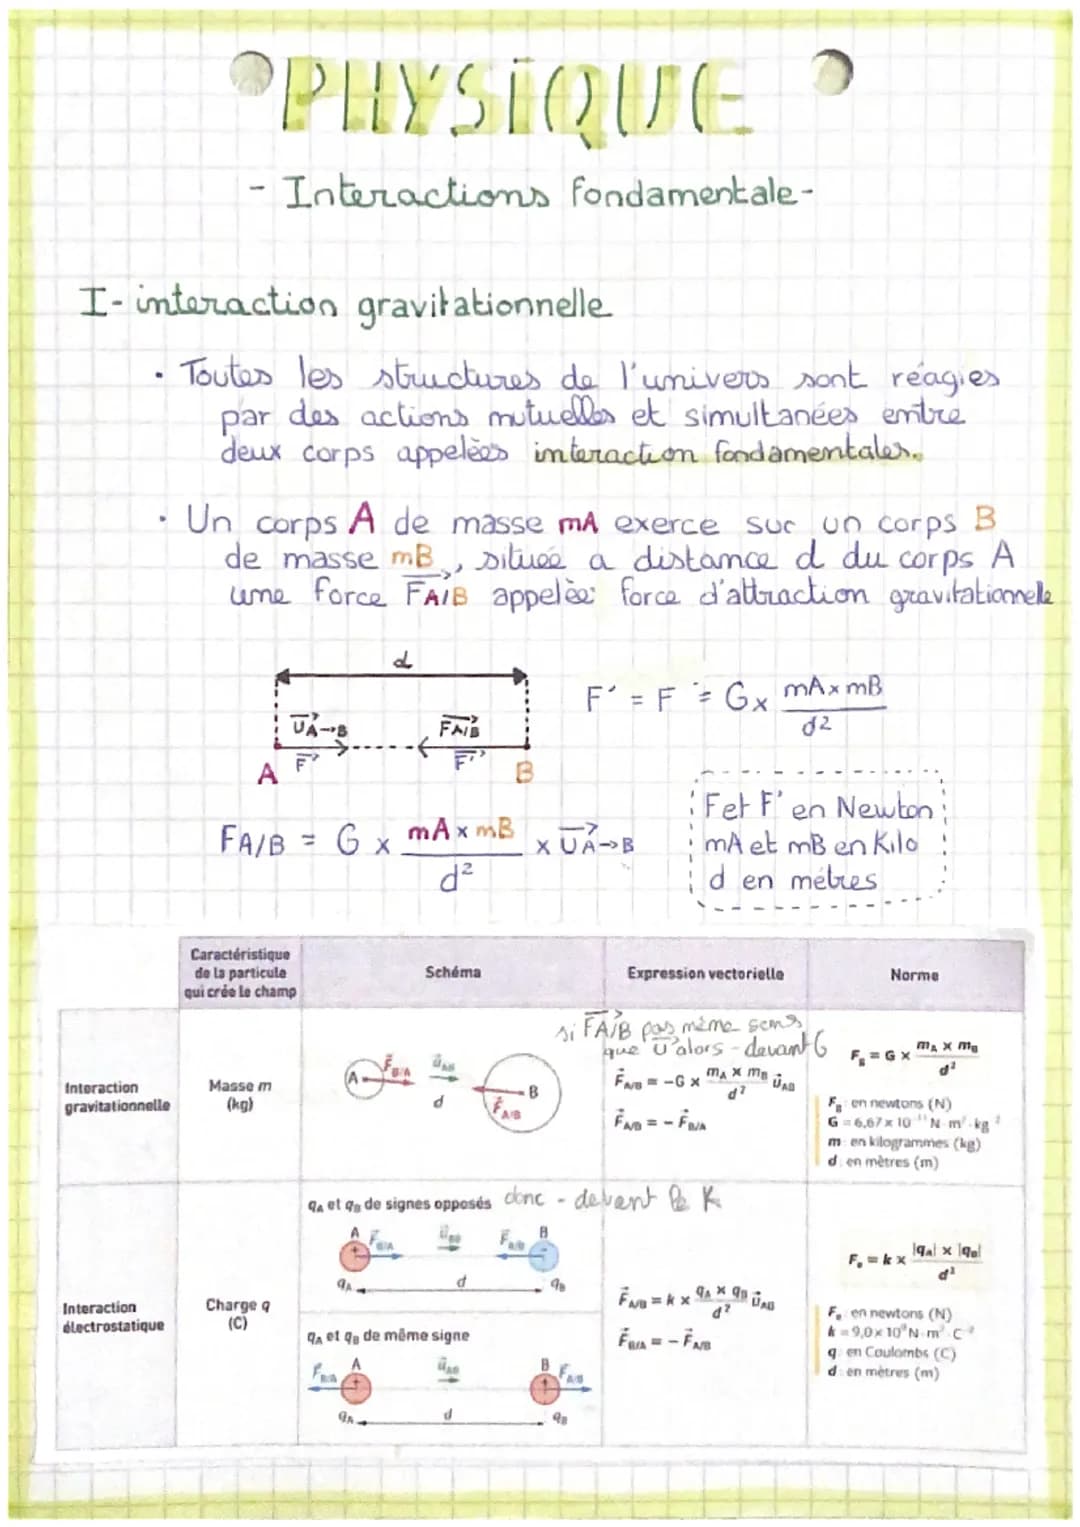 PHYSIQUE
- Interactions fondamentale -
I - interaction gravitationnelle
• Toutes les structures de l'univers sont réagies
par des actions mutuelles et simultanées entre
deux corps appelées interaction fondamentales.
• Un corps A de masse mA exerce sur un corps B
de masse mB, située a distance d du corps A
une force FA/B appelée: force d'attraction gravitationnelle
d
UA→B FA/B
F F'
A B
F' = F = G x mA x mB / d2
FA/B = G x mA x mB / d² x UA→B
F et F' en Newton
mA et mB en Kilo
d en mètres
Caractéristique
de la particule
qui crée le champ
Schéma
Expression vectorielle
Norme
Interaction
gravitationnelle
Masse m
(kg)
A F B/A u AB d F A/B B
si FA/B pas même sens
que U alors - devant G
F A/B = -G × mA × mB / d² u AB
F A/B = - F B/A
Fg = G × mA × mB / d²
Fg : en newtons (N)
G = 6,67 × 10⁻¹¹ N·m²·kg⁻²
m : en kilogrammes (kg)
d : en mètres (m)
Interaction
électrostatique
Charge q
(C)
qA et qB de signes opposés donc - devant le K
A F B/A u AB F A/B B
qA d qB
qA et qB de même signe
F B/A A u AB B F A/B
qA d qB
F A/B = k × qA × qB / d² u AB
F B/A = - F A/B
Fe = k × |qA| × |qB| / d²
Fe : en newtons (N)
k = 9,0 × 10⁹ N·m²·C⁻²
q : en Coulombs (C)
d : en mètres (m)